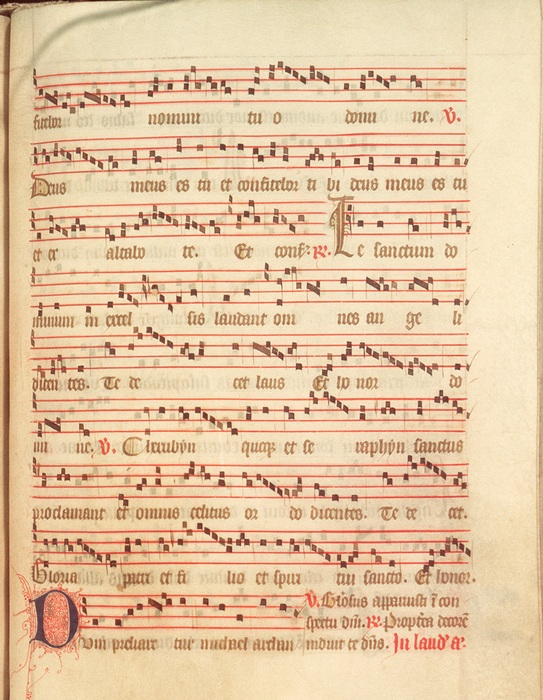 fitebor nomini tu o domi ne. V.
Deus meus es tu et confitebor ti bi deus meus es tu
et ex altabo te. Et conf: R. Te sanctum do
minum in excel sis laudant om nes an ge li
dicen tes. Te de cet laus Et ho nor do
mi ne. V. Cherubyn quoque et se raphyn sanctus
proclamant et omnis celitus or do dicentes. Te de cet.
Gloria patri et fi lio et spiri tui sancto. Et honor.
V. Gloriosus apparuisti in con
spectu dni. R. Propterea decorem
Dum preliare tur michael archan induit te dns. In laud' a.